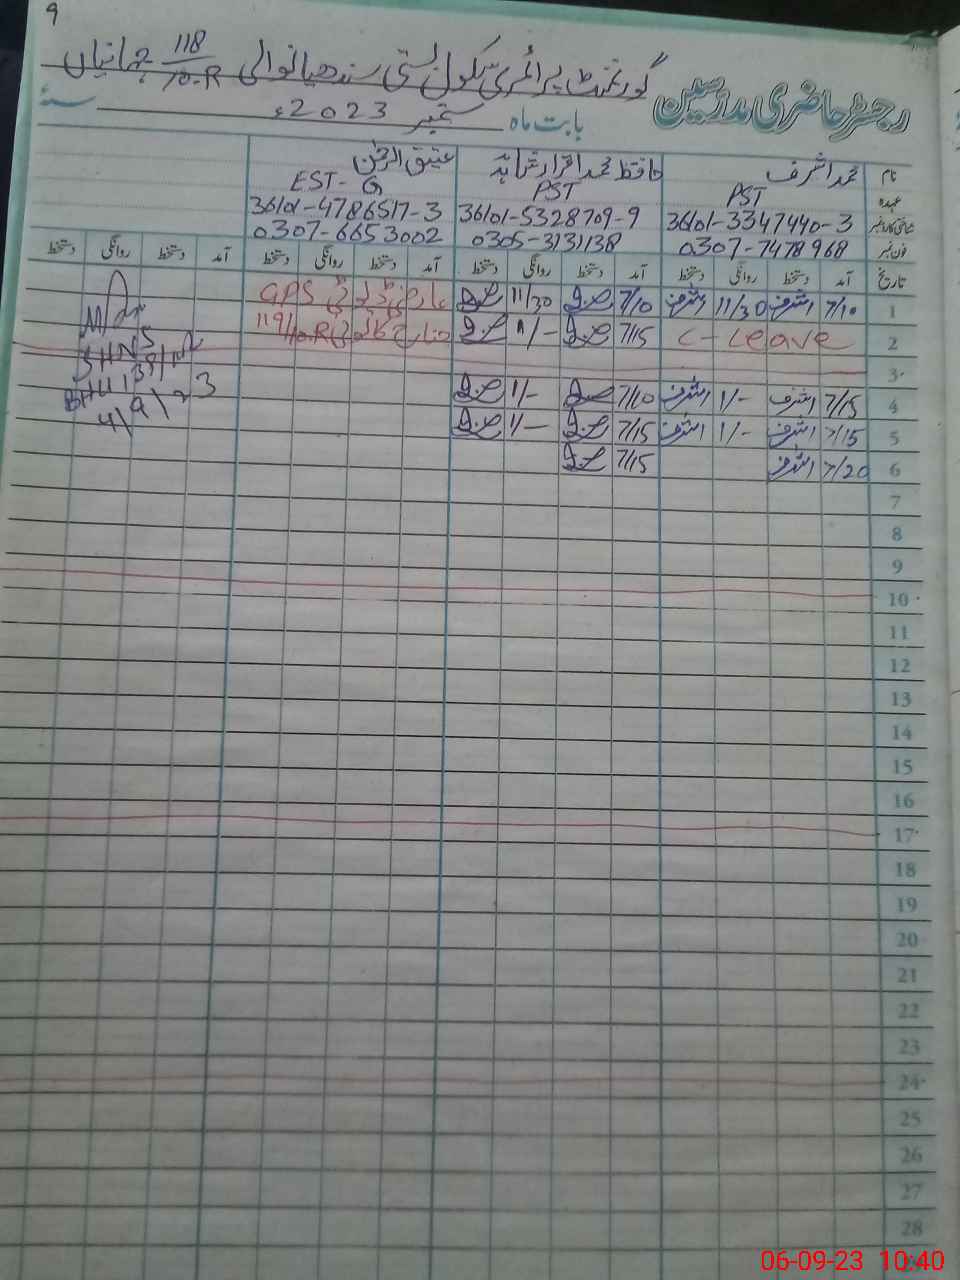 9
گورنمنٹ پرائمری سکول بستی سندھیانوالی 118/10-R جہانیاں
رجسٹر حاضری مدرسین
بابت ماہ ستمبر 2023ء سنہ
نام محمد اشرف حافظ محمد اقرار شاہد عتیق الرحمٰن
عہدہ PST PST EST-G
شناختی کارڈ نمبر 36101-3347440-3 36101-5328709-9 36101-4786517-3
فون نمبر 0307-7478968 0305-3131138 0307-6653002
تاریخ آمد دستخط روانگی دستخط آمد دستخط روانگی دستخط آمد دستخط روانگی دستخط آمد دستخط روانگی دستخط
1 7/10 اشرف 11/30 اشرف 7/10 11/30 عارضی ڈیوٹی GPS
2 C-Leave 7/15 11/- 119/10.R
3
4 7/15 اشرف 1/- اشرف 7/10 1/-
5 7/15 اشرف 1/- اشرف 7/15 1/-
6 7/20 اشرف 7/15
7
8
9
10
11
12
13
14
15
16
17
18
19
20
21
22
23
24
25
26
27
28
4/9/23
06-09-23 10:40